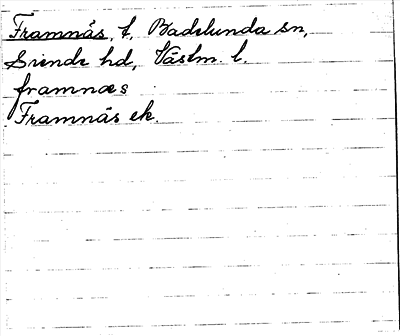 Framnäs, t, Badelunda sn,
Siende hd, Västm. l.
framnæs
Framnäs ek.